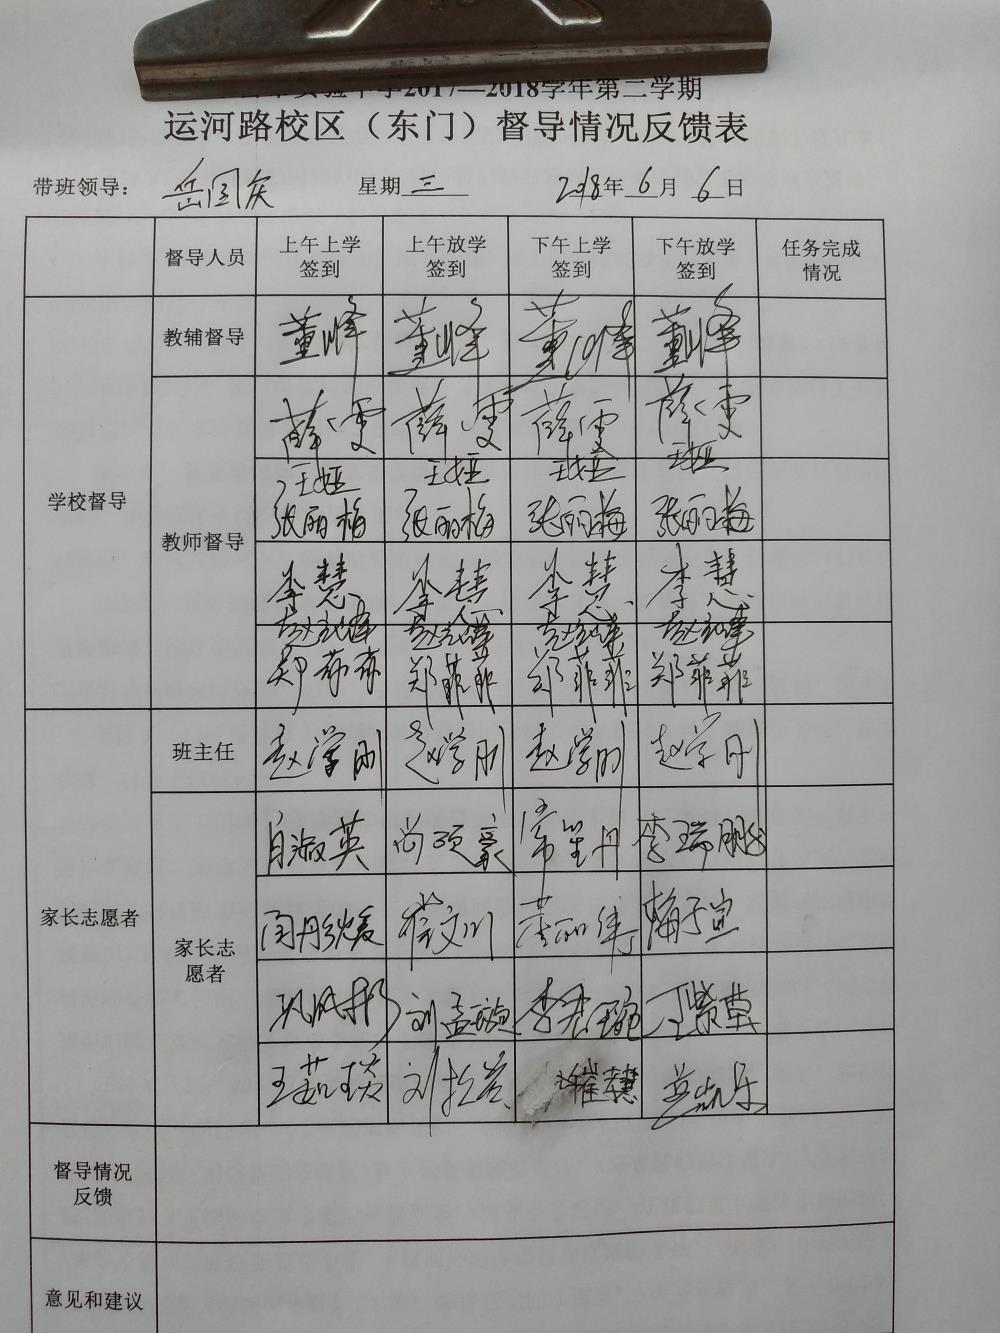 2017—2018学年第二学期
运河路校区（东门）督导情况反馈表
带班领导： 岳国庆 星期 三 2018年 6 月 6 日
督导人员 上午上学签到 上午放学签到 下午上学签到 下午放学签到 任务完成情况
学校督导
教辅督导 董峰 董峰 董峰 董峰
教师督导
薛雯 薛雯 薛雯 薛雯
王娅 王娅 王娅 王娅
张丽梅 张丽梅 张丽梅 张丽梅
李慧 李慧 李慧 李慧
郑菲菲 郑菲菲 郑菲菲 郑菲菲
家长志愿者
班主任 赵学刚 赵学刚 赵学刚 赵学刚
家长志愿者
肖淑英 尚硕豪 常笙丹 李瑞鹏
崔文川 梅子宜
刘孟璇 李君琬 丁紫莹
王茹瑛 崔慧
督导情况反馈
意见和建议